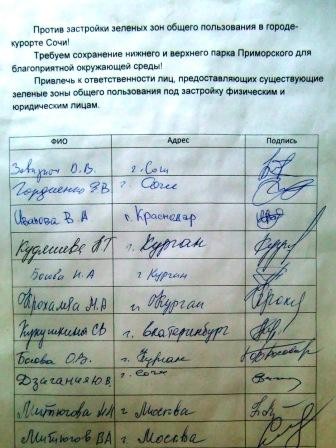 Против застройки зеленых зон общего пользования в городе-
курорте Сочи!
Требуем сохранение нижнего и верхнего парка Приморского для
благоприятной окружающей среды!
Привлечь к ответственности лиц, предоставляющих существующие
зеленые зоны общего пользования под застройку физическим и
юридическим лицам.
ФИО Адрес Подпись
О.В. г. Сочи
Гордиенко Я.В г. Сочи
Иванова В А г. Краснодар
Кудяшева НТ г. Курган
Боева Н.А г Курган
Крохалева М.А г. Курган
Кукушкина СВ г. Екатеринбург
Боева О.В. г. Курган
Дзагания Ю.В. г. Сочи
Митюгова г Москва
Митюгов ВА г. Москва